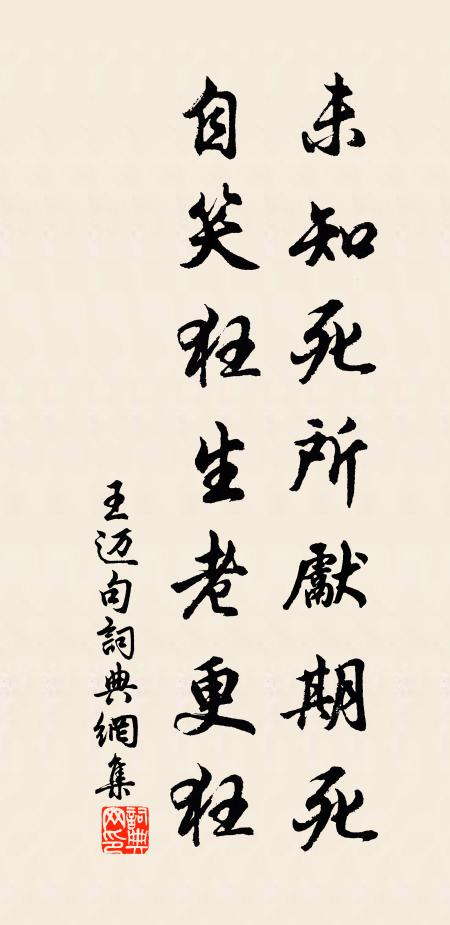 未知死所獻期死
自笑狂生老更狂
王迈句詞典網集
詞典網印